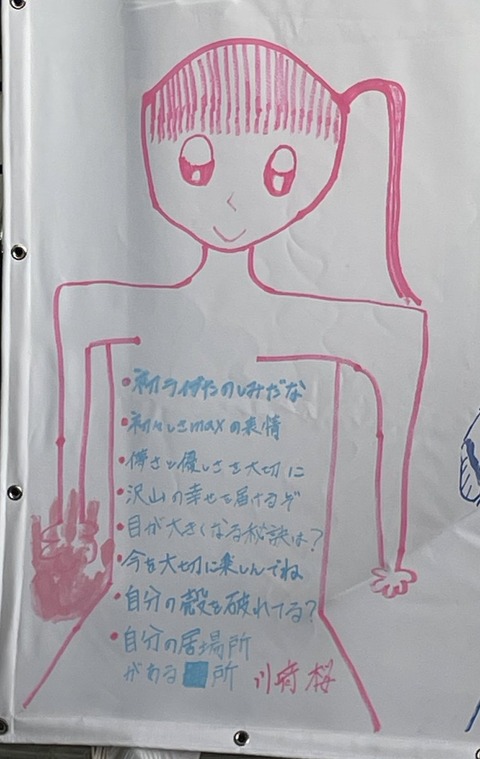 ・初ライブたのしみだな
・初々しさmaxの表情
・儚さと優しさを大切に
・沢山の幸せを届けるぞ
・目が大きくなる秘訣は？
・今を大切に楽しんでね
・自分の殻を破れてる？
・自分の居場所
がある 所
桜